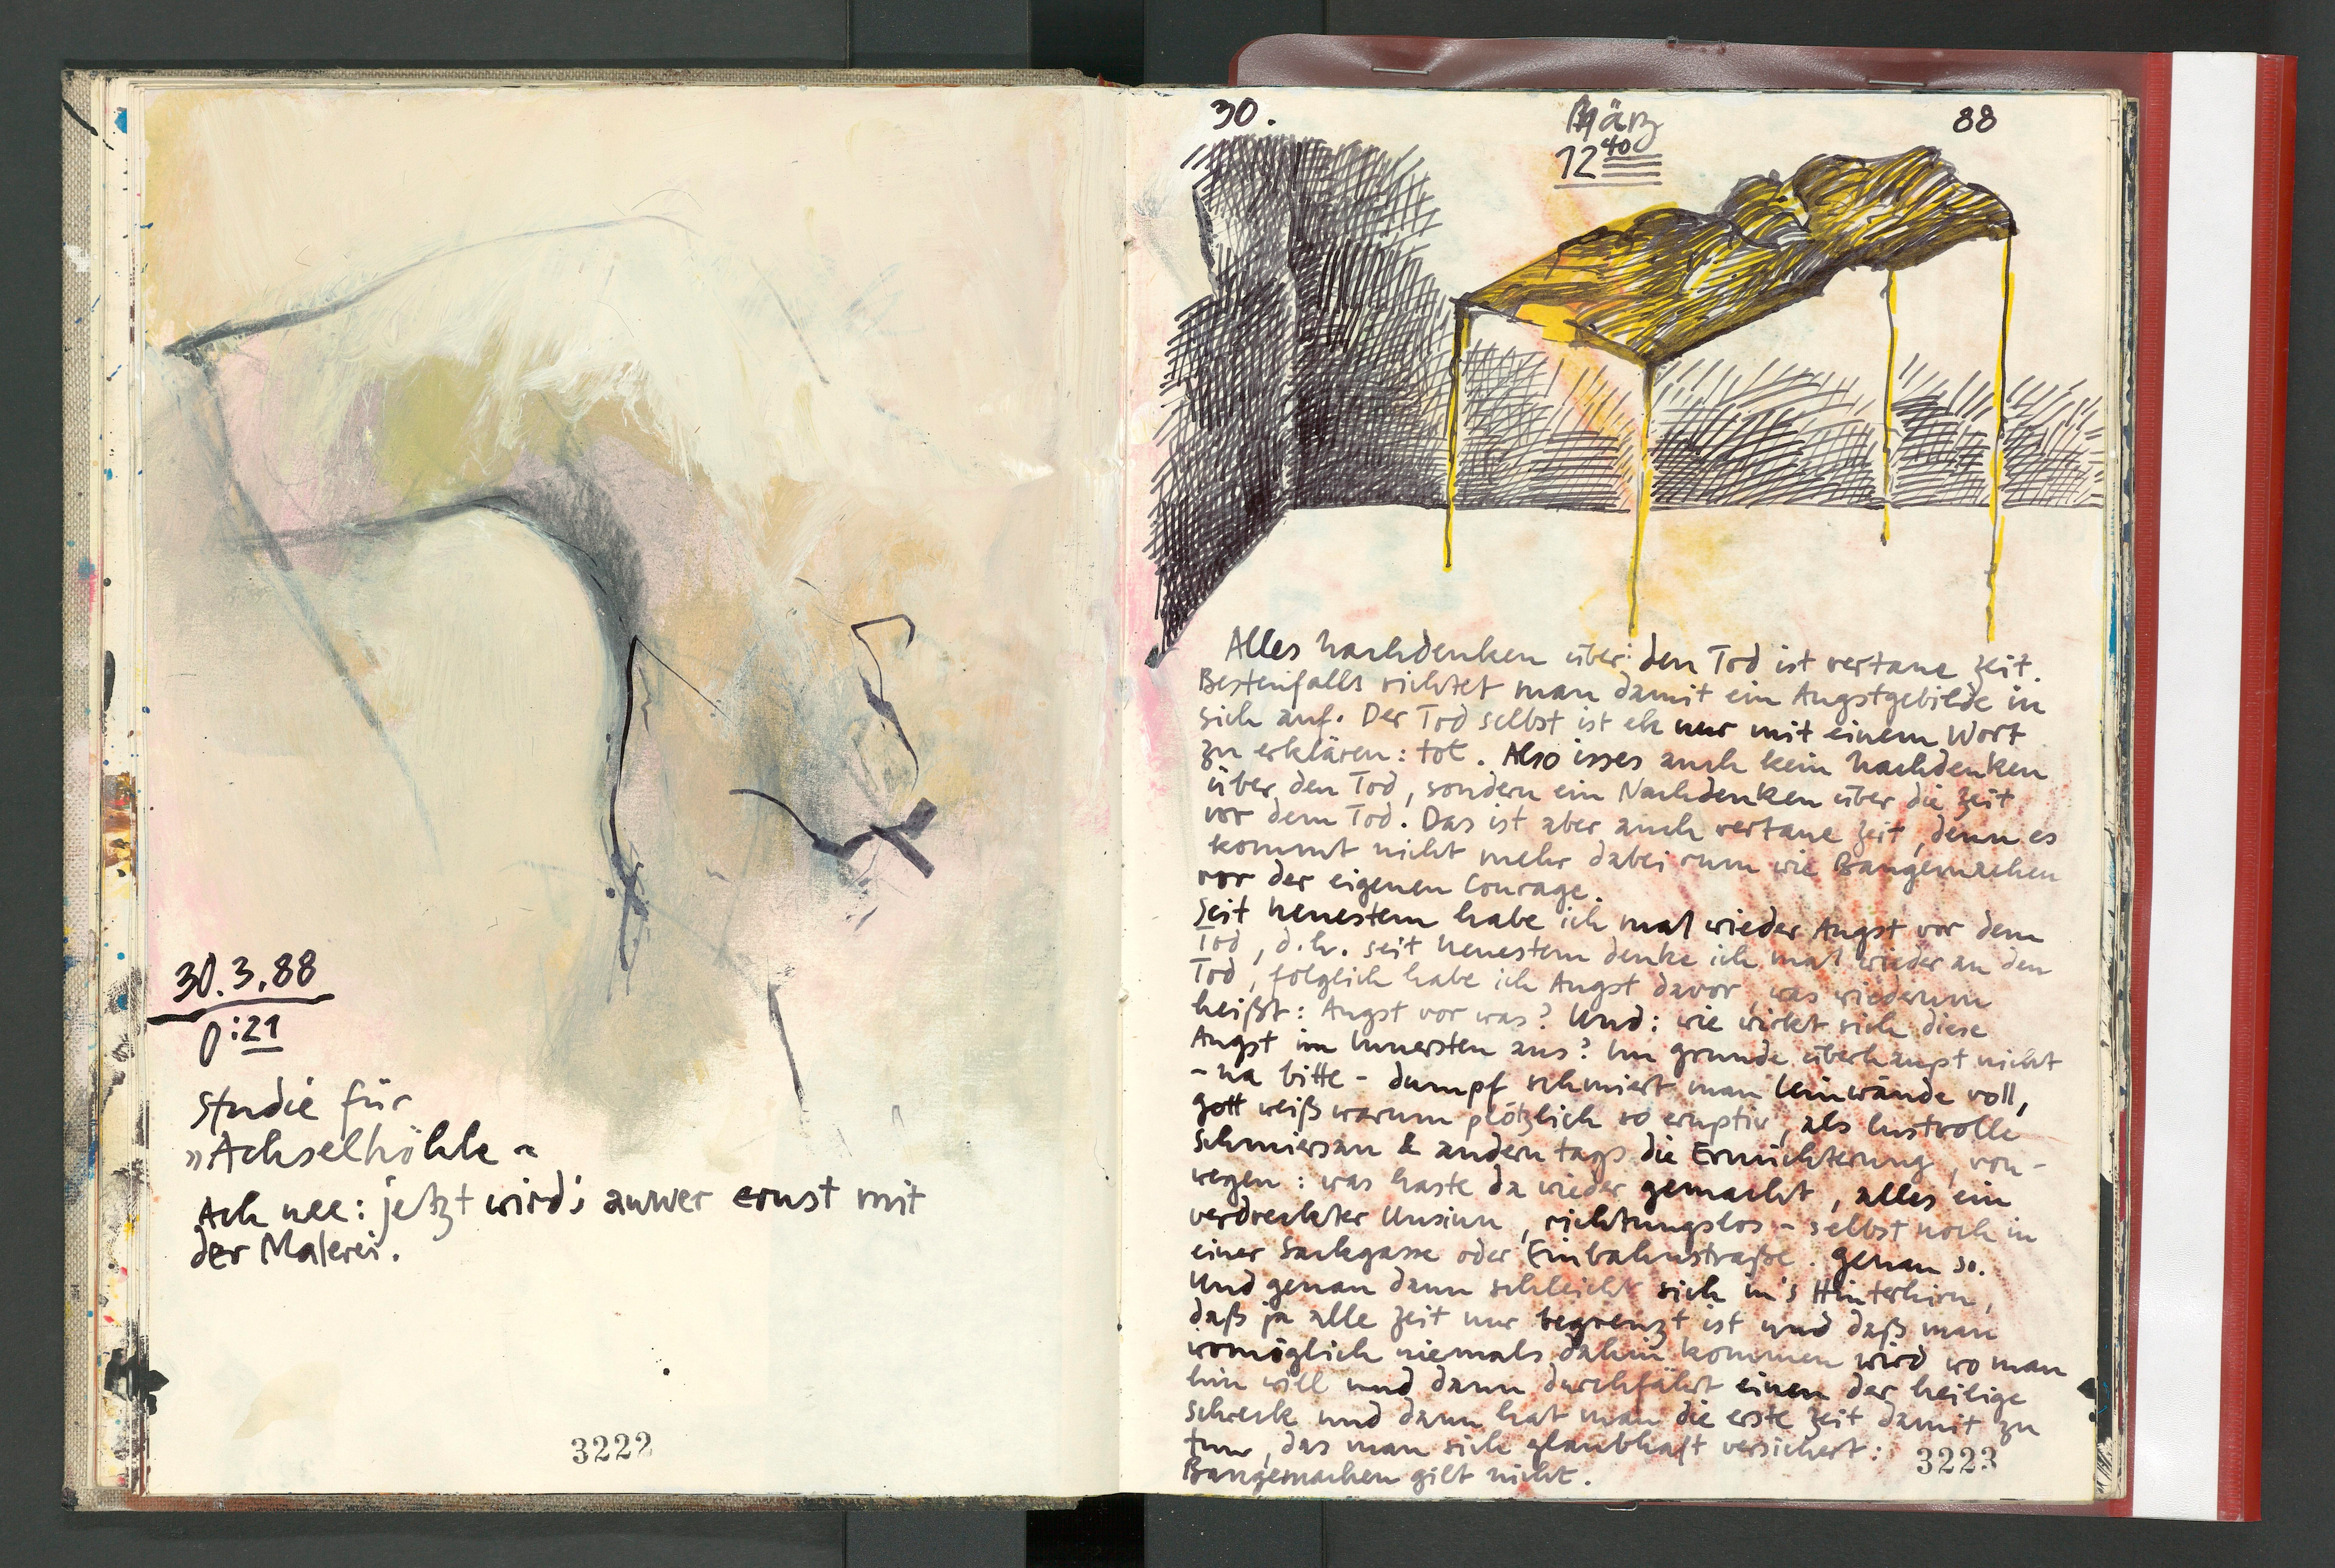 30.3.88
0:21
Studie für
»Achselhöhle«
Ach nee: jetzt wird's awwer ernst mit
der Malerei.
3222
30. März 88
12⁴⁰
Alles nachdenken über den Tod ist vertane Zeit.
Bestenfalls richtet man damit ein Angstgebilde in
sich auf. Der Tod selbst ist eh nur mit einem Wort
zu erklären: tot. Also isses auch kein nachdenken
über den Tod, sondern ein Nachdenken über die Zeit
vor dem Tod. Das ist aber auch vertane Zeit, denn es
kommt nicht mehr dabei rum wie Bangemachen
vor der eigenen Courage.
Seit neuestem habe ich mal wieder Angst vor dem
Tod, d.h. seit neuestem denke ich mal wieder an den
Tod, folglich habe ich Angst davor, was wiederum
heißt: Angst vor was? Und: wie wirkt sich diese
Angst im Innersten aus? Im grunde überhaupt nicht
- na bitte - dumpf schmiert man leinwände voll,
gott weiß warum plötzlich so eruptiv, als lustvolle
Schmiersau & andern tags die Ernüchterung, von-
wegen: was haste da wieder gemacht, alles ein
verdreckter Unsinn, richtungslos - selbst noch in
einer Sackgasse oder Einbahnstraße. genau so.
Und genau dann schleicht sich in's Hinterhirn,
daß ja alle Zeit nur begrenzt ist und daß man
womöglich niemals dahin kommen wird wo man
hin will und dann durchfährt einen der heilige
schreck und dann hat man die erste Zeit damit zu
tun, das man sich glaubhaft versichert:
Bangemachen gilt nicht.
3223